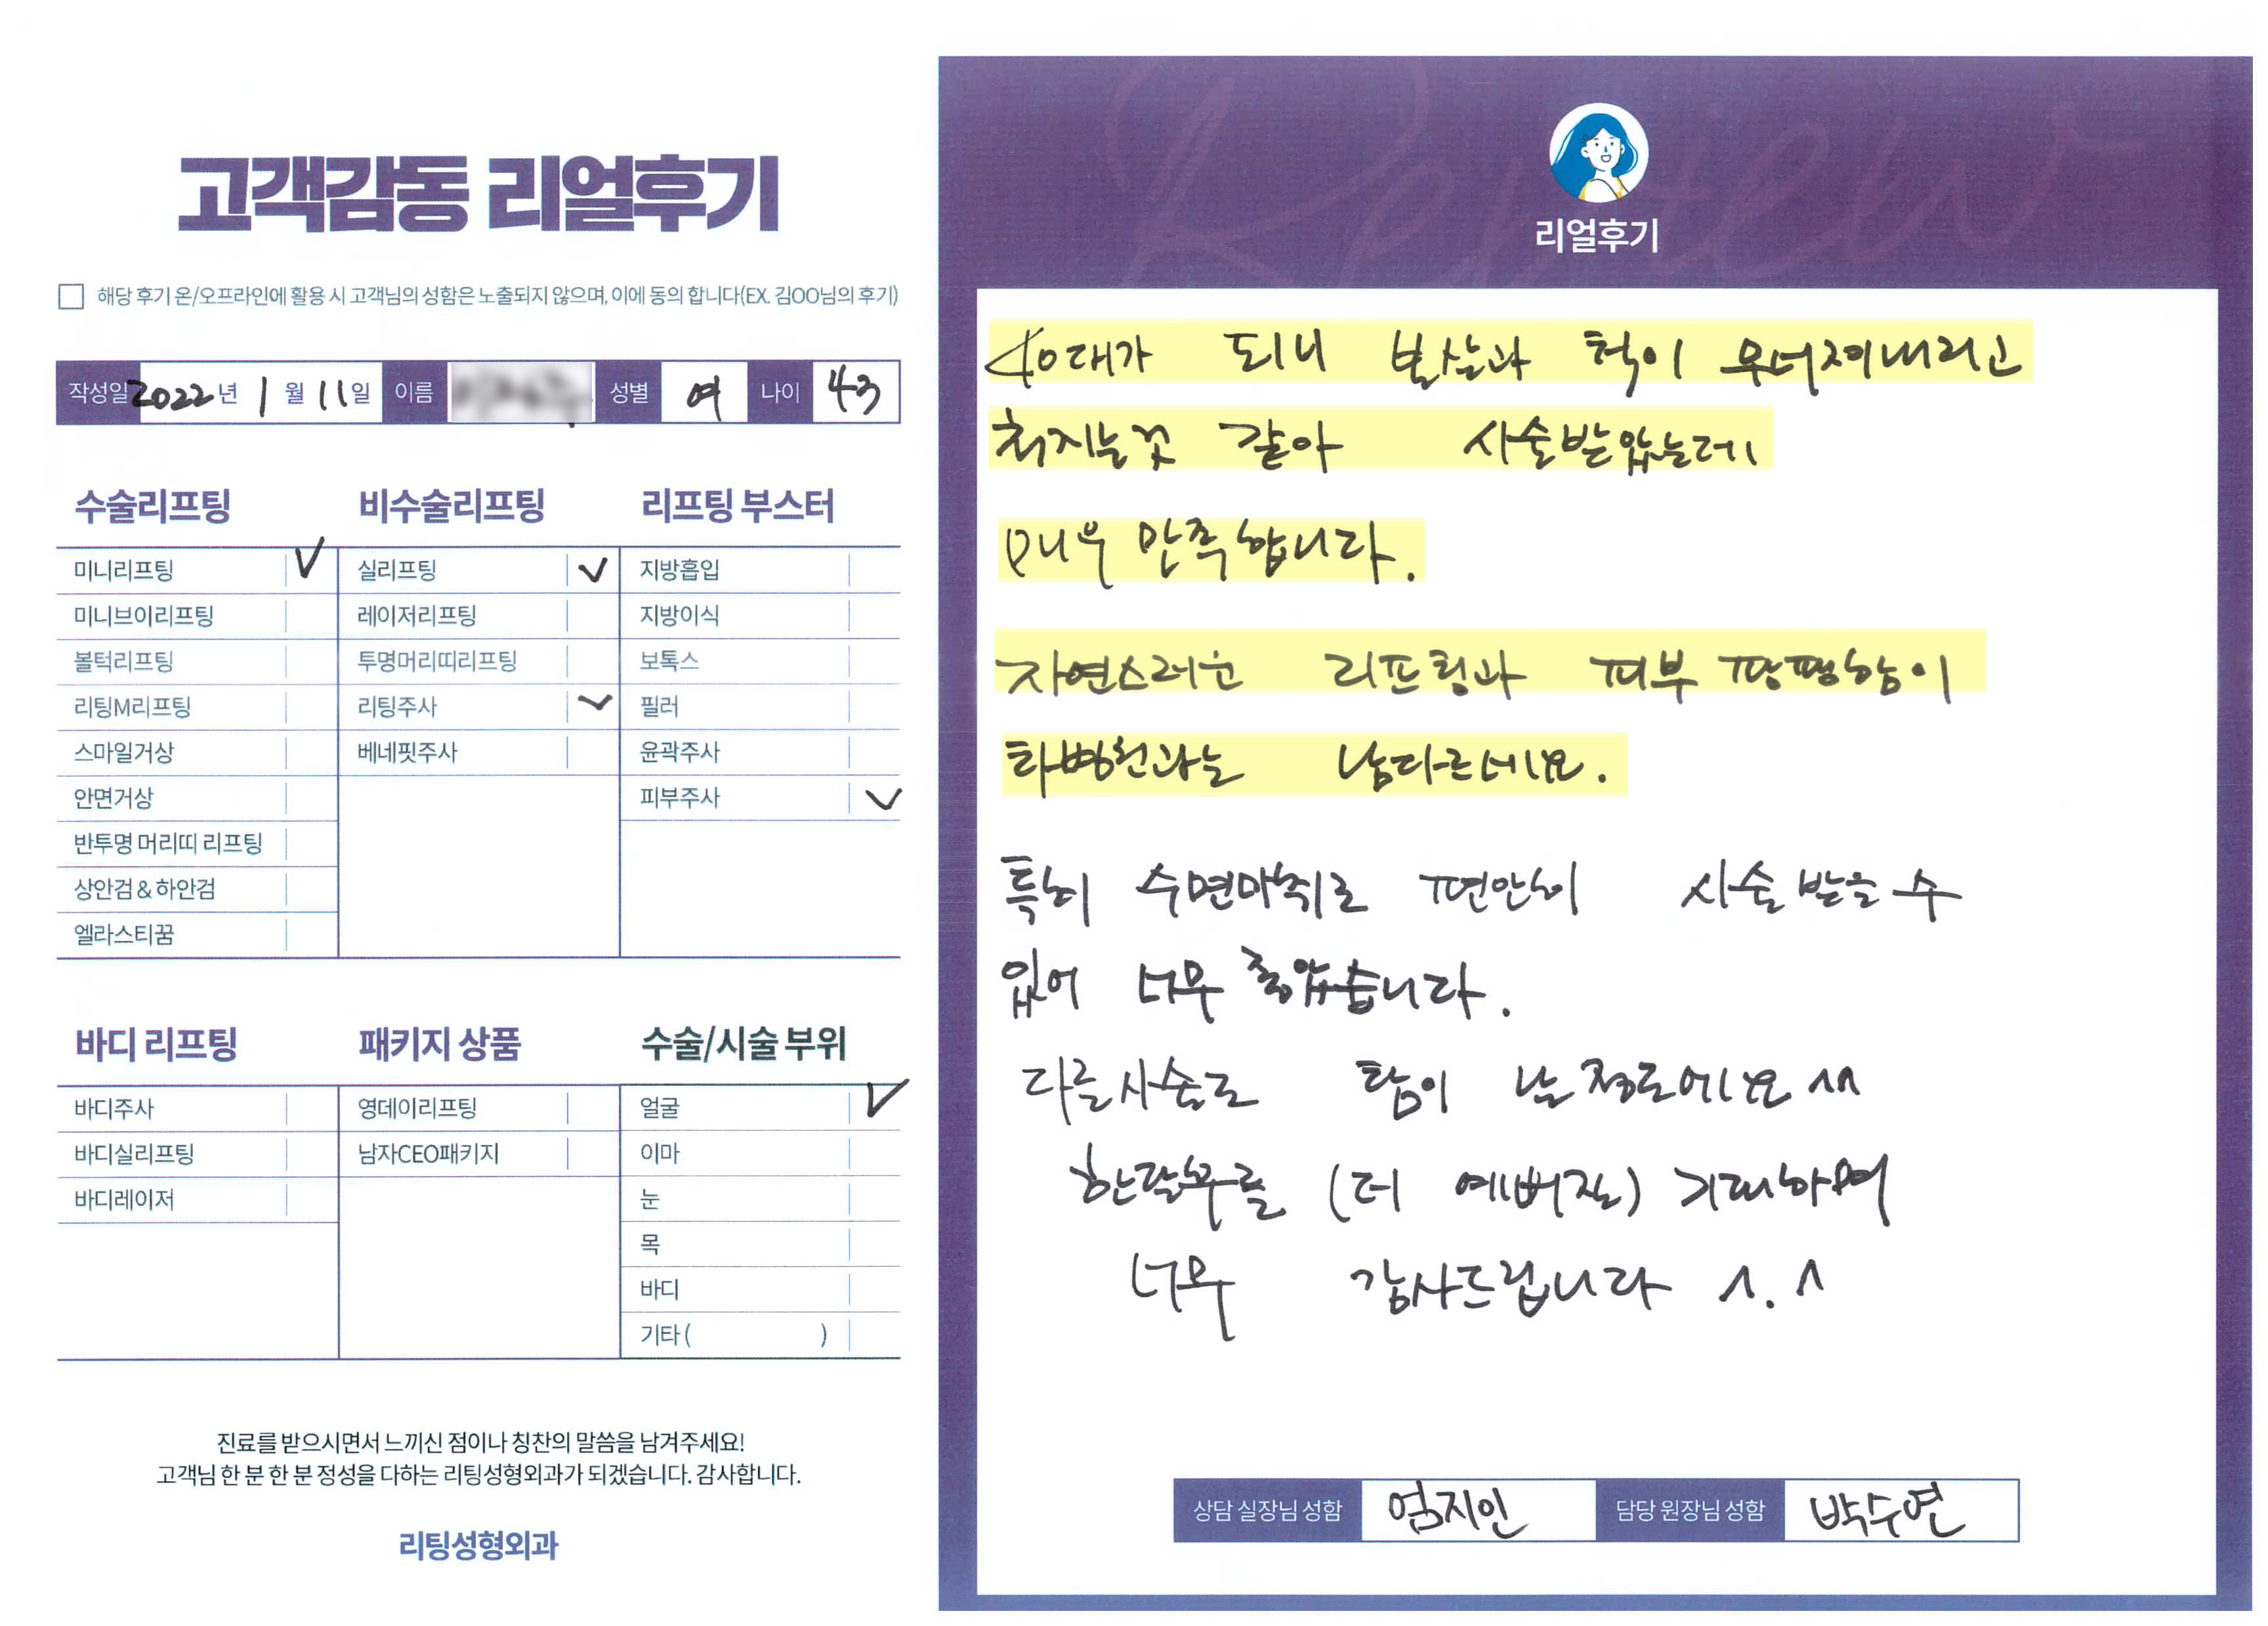 고객감동 리얼후기
해당 후기 온/오프라인에 활용 시 고객님의 성함은 노출되지 않으며, 이에 동의 합니다(EX. 김OO님의 후기)
작성일 2022년 1월 11일 이름 성별 여 나이 43
수술리프팅
미니리프팅 V
미니브이리프팅
볼턱리프팅
리팅M리프팅
스마일거상
안면거상
반투명 머리띠 리프팅
상안검 & 하안검
엘라스티꿈
비수술리프팅
실리프팅 V
레이저리프팅
투명머리띠리프팅
리팅주사 V
베네핏주사
리프팅 부스터
지방흡입
지방이식
보톡스
필러
윤곽주사
피부주사 V
바디 리프팅
바디주사
바디실리프팅
바디레이저
패키지 상품
영데이리프팅
남자CEO패키지
수술/시술 부위
얼굴 V
이마
눈
목
바디
기타 ( )
진료를 받으시면서 느끼신 점이나 칭찬의 말씀을 남겨주세요!
고객님 한 분 한 분 정성을 다하는 리팅성형외과가 되겠습니다. 감사합니다.
리팅성형외과
Review
리얼후기
40대가 되니 볼살과 턱이 무너져내리고
쳐지는것 같아 시술받았는데
매우 만족합니다.
자연스러운 리프팅과 피부 땅땡함이
타병원과는 남다르네요.
특히 수면마취로 편안히 시술 받을 수
있어 너무 좋았습니다.
다른시술도 탐이 날 정도에요 ^^
한달후를 (더 예뻐질) 기대하며
너무 감사드립니다 ^.^
상담 실장님 성함 엄지인 담당 원장님 성함 박수연